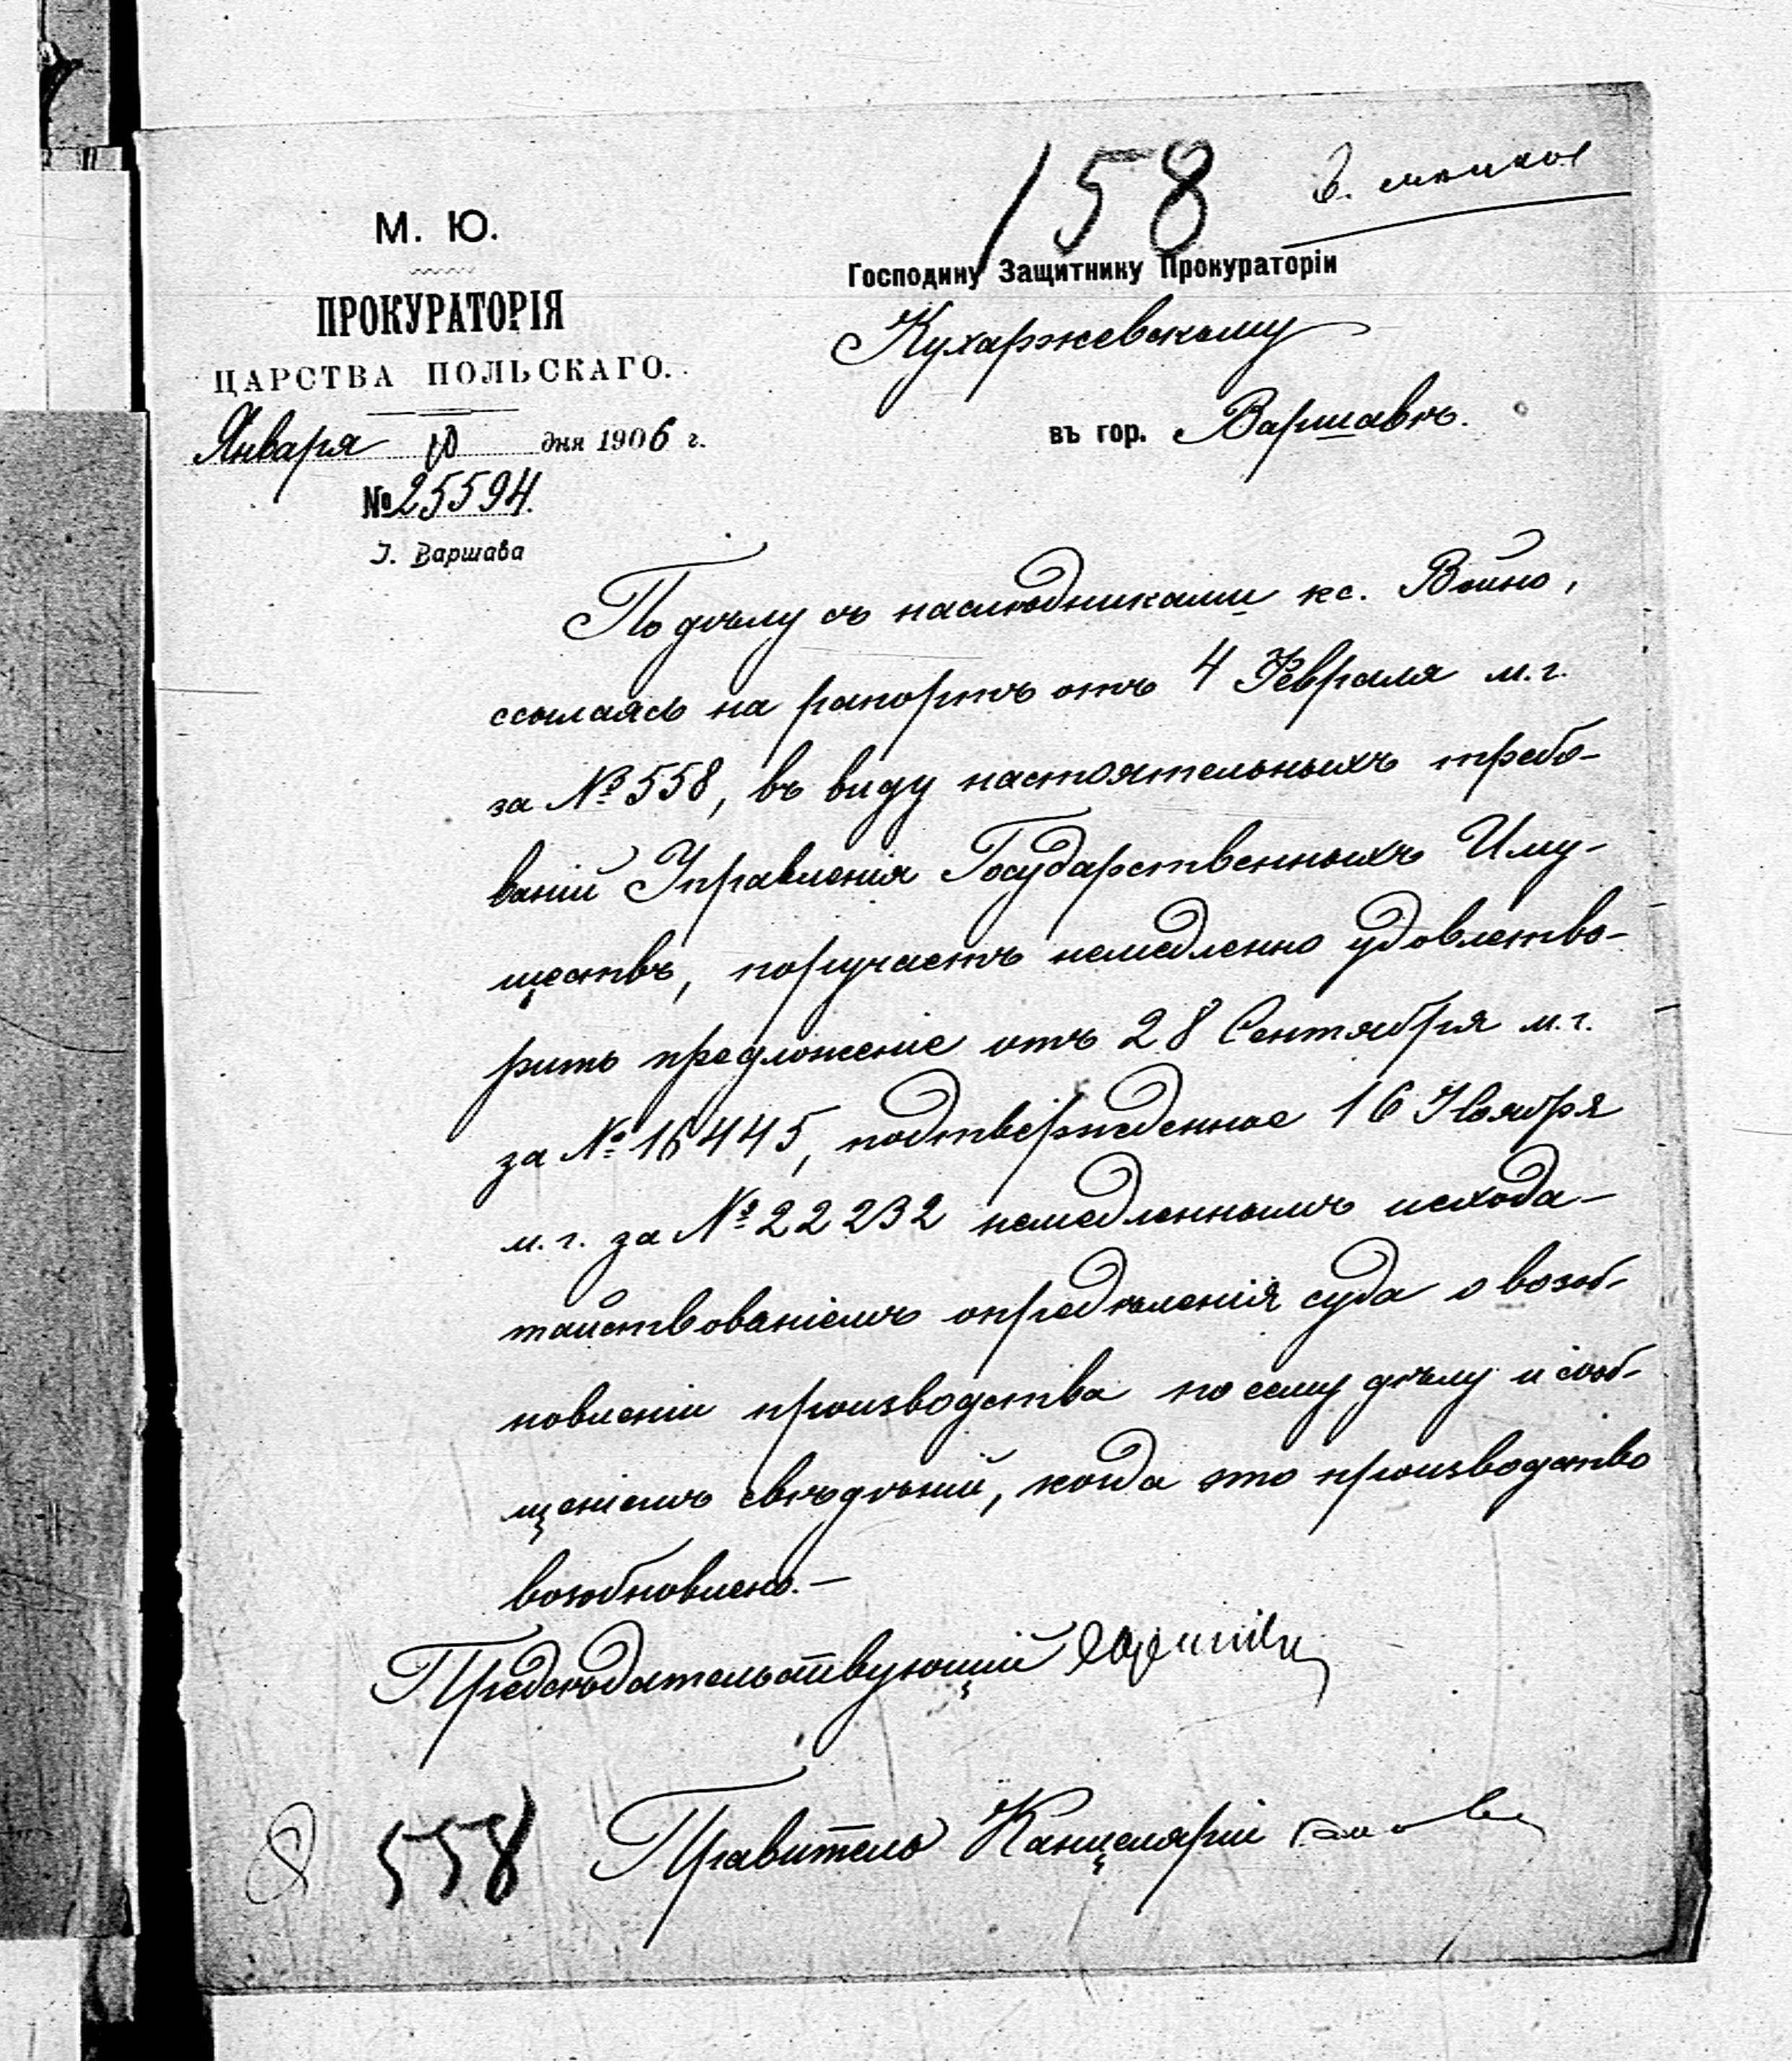 158
М. Ю.
ПРОКУРАТОРІЯ
ЦАРСТВА ПОЛЬСКАГО.
Января 10 дня 1906 г.
№ 25594.
Г. Варшава
Господину Защитнику Прокураторіи
Кухаржевскому
въ гор. Варшавѣ.
По дѣлу съ наслѣдниками кс. Войно,
ссылаясь на рапортъ отъ 4 Февраля м.г.
за № 558, въ виду настоятельныхъ требо-
ваній Управленія Государственныхъ Иму-
ществъ, поручаетъ немедленно удовлетво-
рить предложеніе отъ 28 Сентября м.г.
за № 16445, подтвержденное 16 Ноября
м.г. за № 22232 немедленнымъ исхода-
тайствованіемъ опредѣленія суда о возоб-
новленіи производства по сему дѣлу и сооб-
щеніемъ свѣдѣній, когда это производство
возобновлено.—
Предсѣдательствующій
558 Правитель Канцеляріи